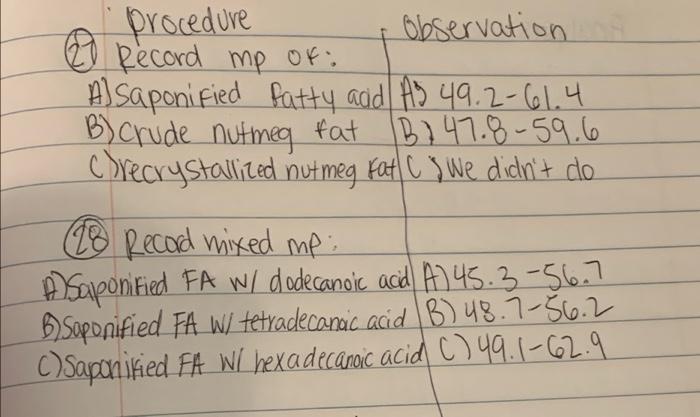 procedure observation
27 Record mp of:
A) Saponified fatty acid A) 49.2-61.4
B) crude nutmeg fat B) 47.8-59.6
C) recrystallized nutmeg fat C) We didn't do
28 Record mixed mp:
A) Saponified FA W/ dodecanoic acid A) 45.3-56.7
B) Saponified FA W/ tetradecanoic acid B) 48.7-56.2
C) Saponified FA W/ hexadecanoic acid C) 49.1-62.9